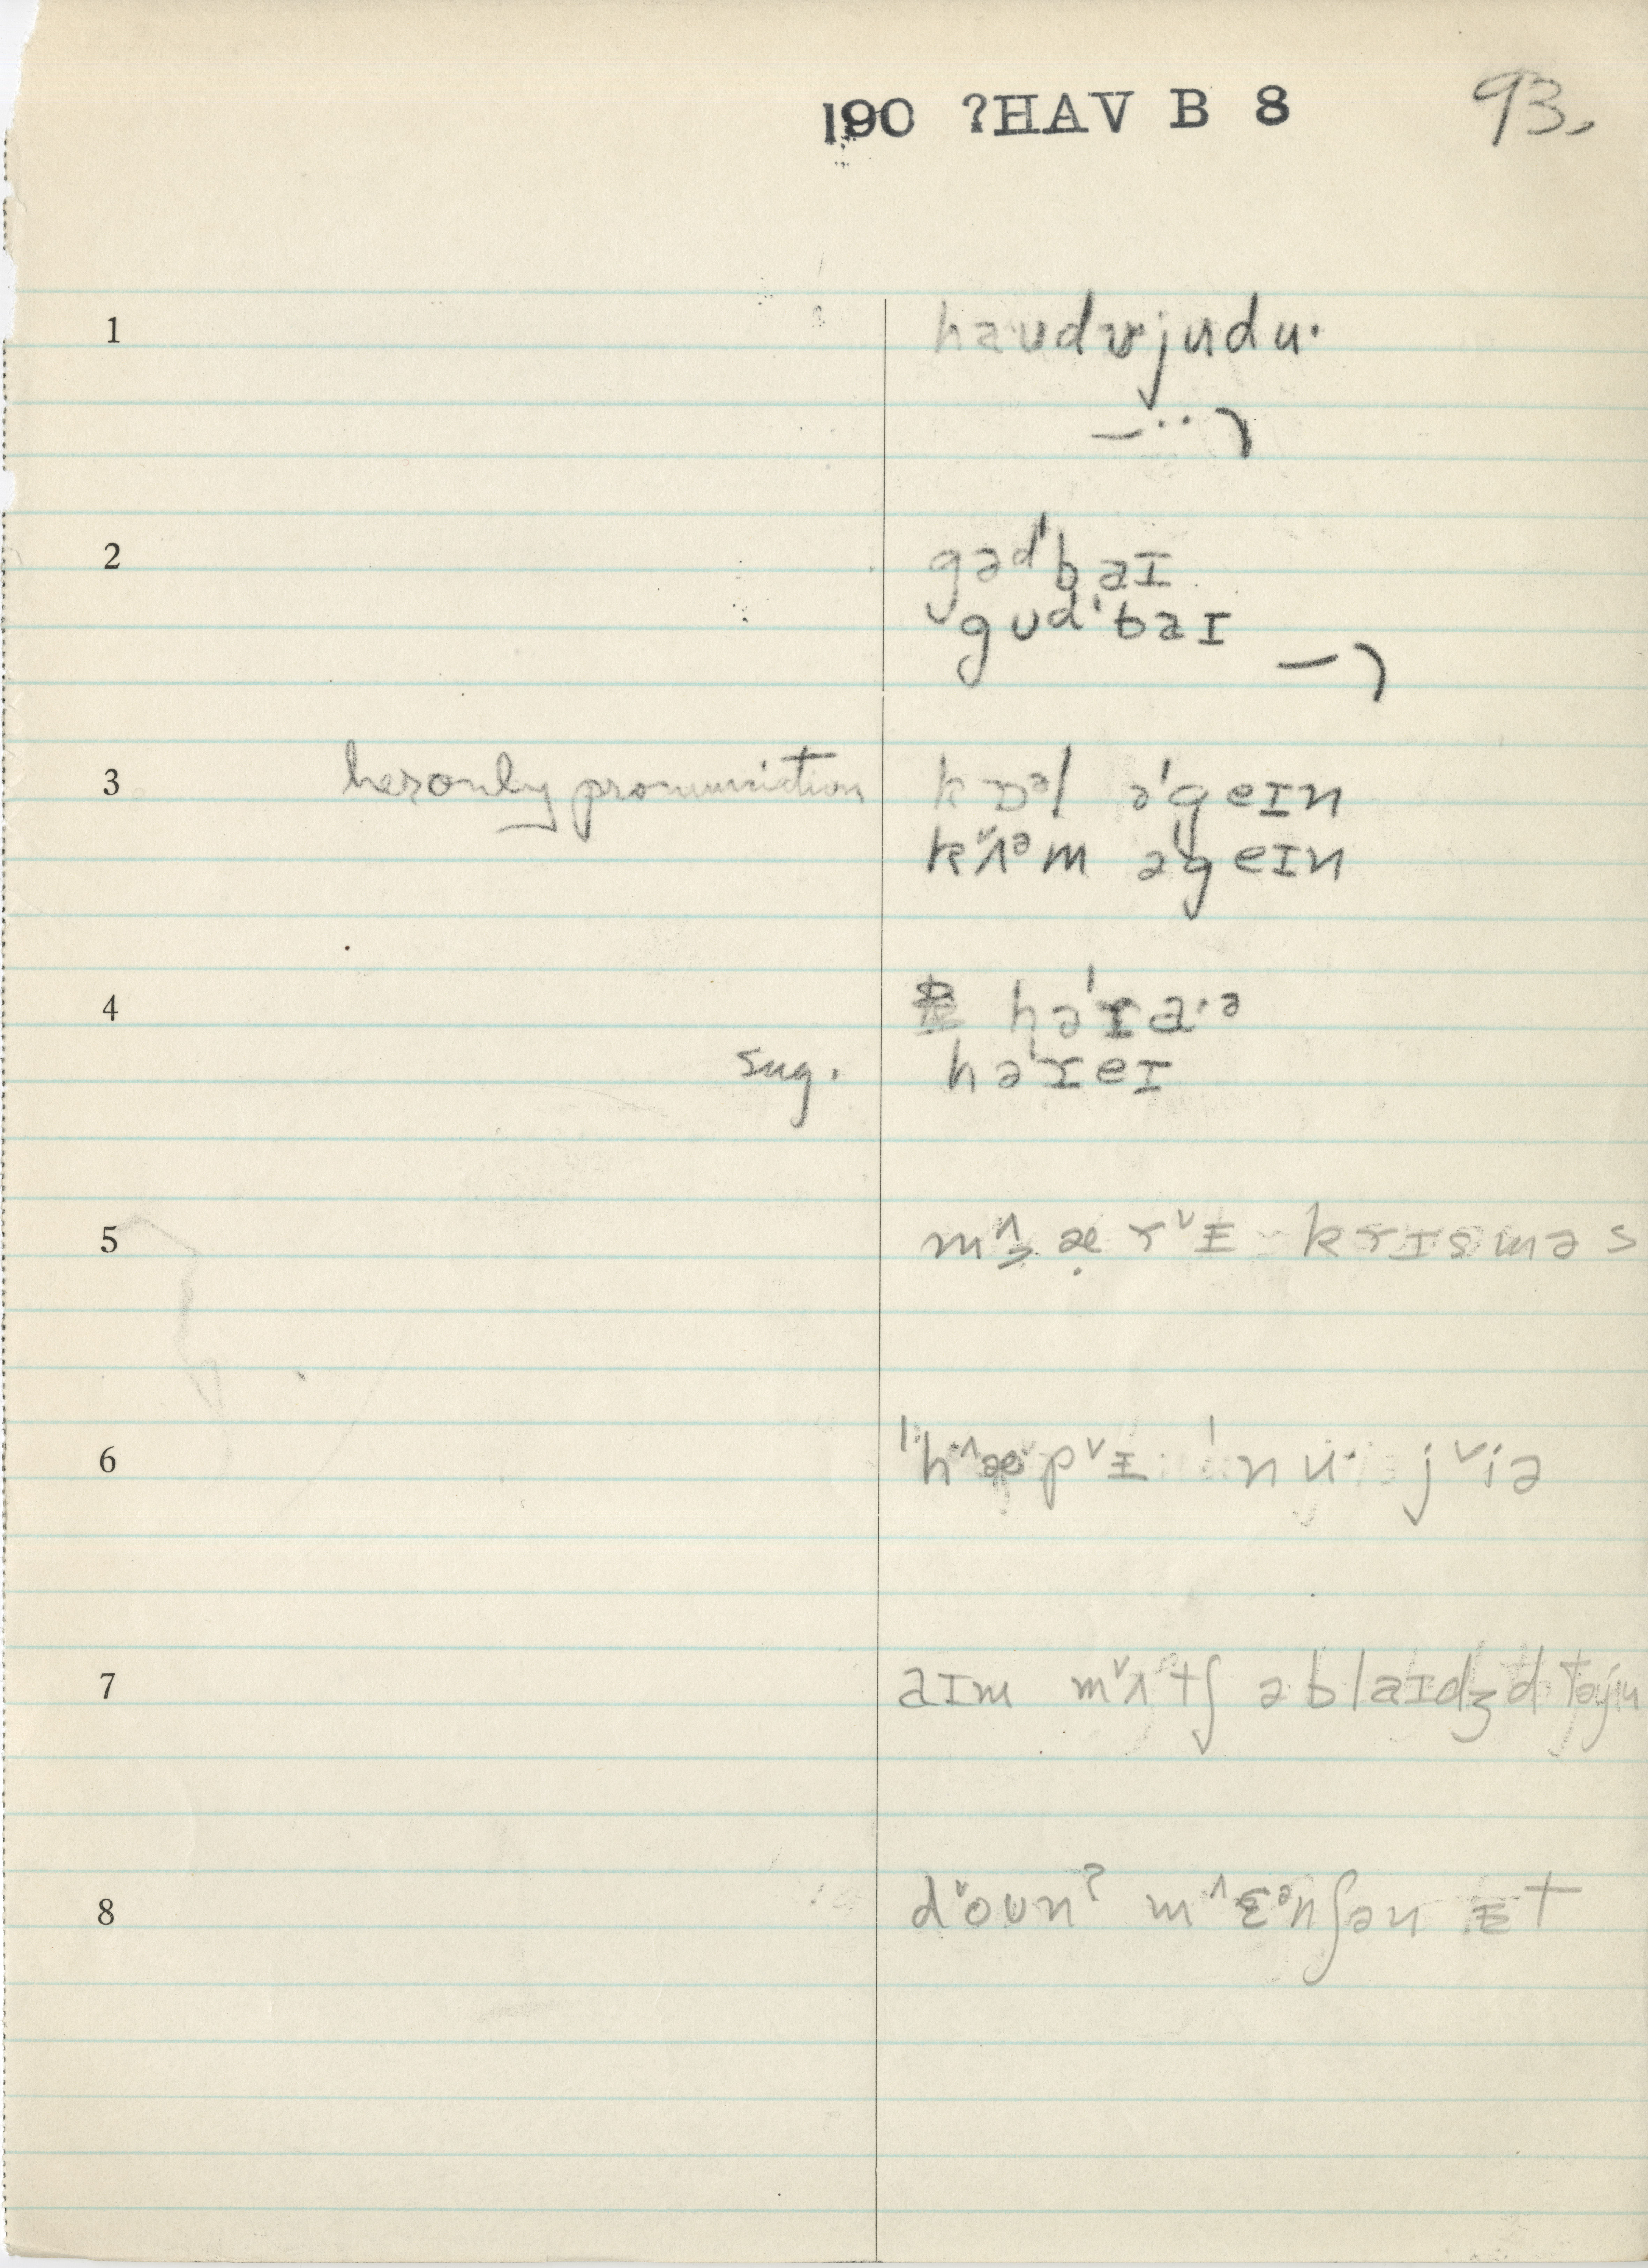 190 ?HAV B 8
93.
1 haudʊjudu·
2 gəd'baɪ
gʊd'baɪ
3 her only pronunciation kɒᵊl ə'geɪn
kᵛʌᵊm ə'geɪn
4 hə'ra·ᵊ
sug. hə'reɪ
5 krɪsməs
6 'nu· jᵛiə
7 aɪm mᵛʌtʃ əblaɪdʒd
8 dᵛoun? m^ɛᵊnʃən ɪt